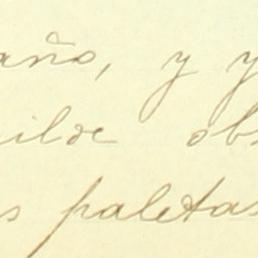 año, y y
ilde obs
s paletas